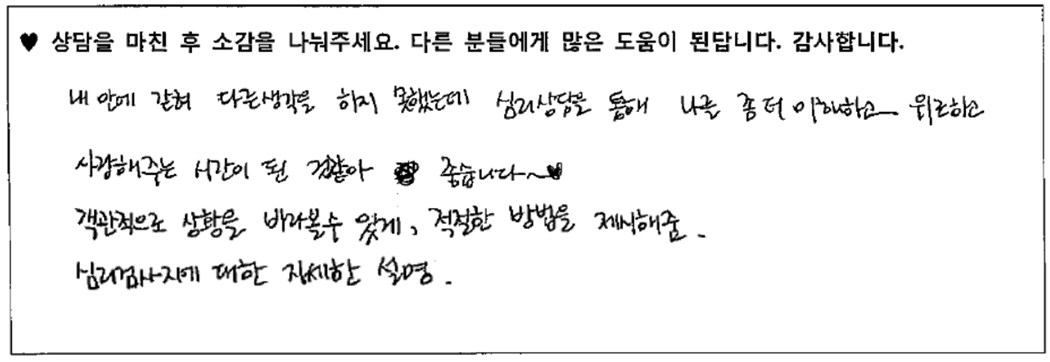 ♥ 상담을 마친 후 소감을 나눠주세요. 다른 분들에게 많은 도움이 된답니다. 감사합니다.
내 안에 갇혀 다른생각을 하지 못했는데 심리상담을 통해 나를 좀 더 이해하고 위로하고
사랑해주는 시간이 된 것같아 좋습니다~♥
객관적으로 상황을 바라볼수 있게, 적절한 방법을 제시해줌.
심리검사지에 대한 자세한 설명.